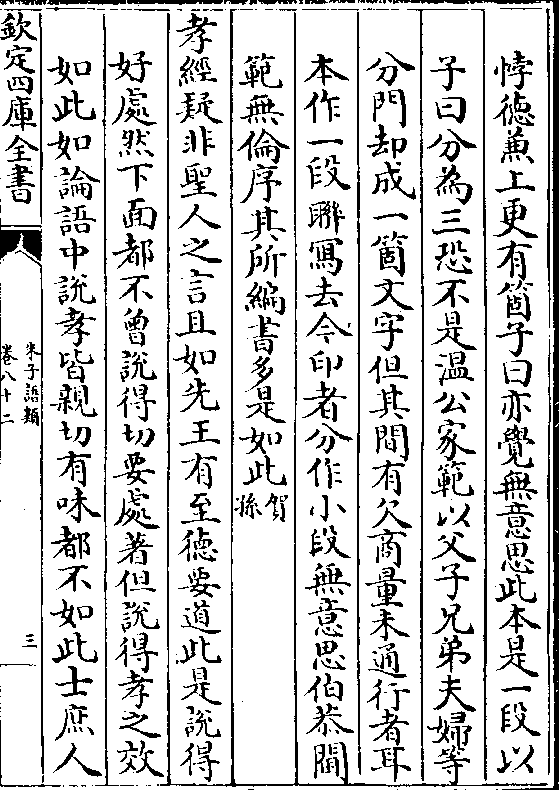 悖德兼上更有箇子曰亦覺無意思此本是一段以
子曰分為三恐不是溫公家範以父子兄弟夫婦等
分門却成一箇文字但其間有欠商量未通行者耳
本作一段聯寫去今印者分作小段無意思伯恭閫
範無倫序其所編書多是如此賀孫
孝經疑非聖人之言且如先王有至德要道此是說得
好處然下面都不曾說得切要處著但說得孝之效
如此如論語中說孝皆親切有味都不如此士庶人
欽定四庫全書
朱子語類
卷八十二
三